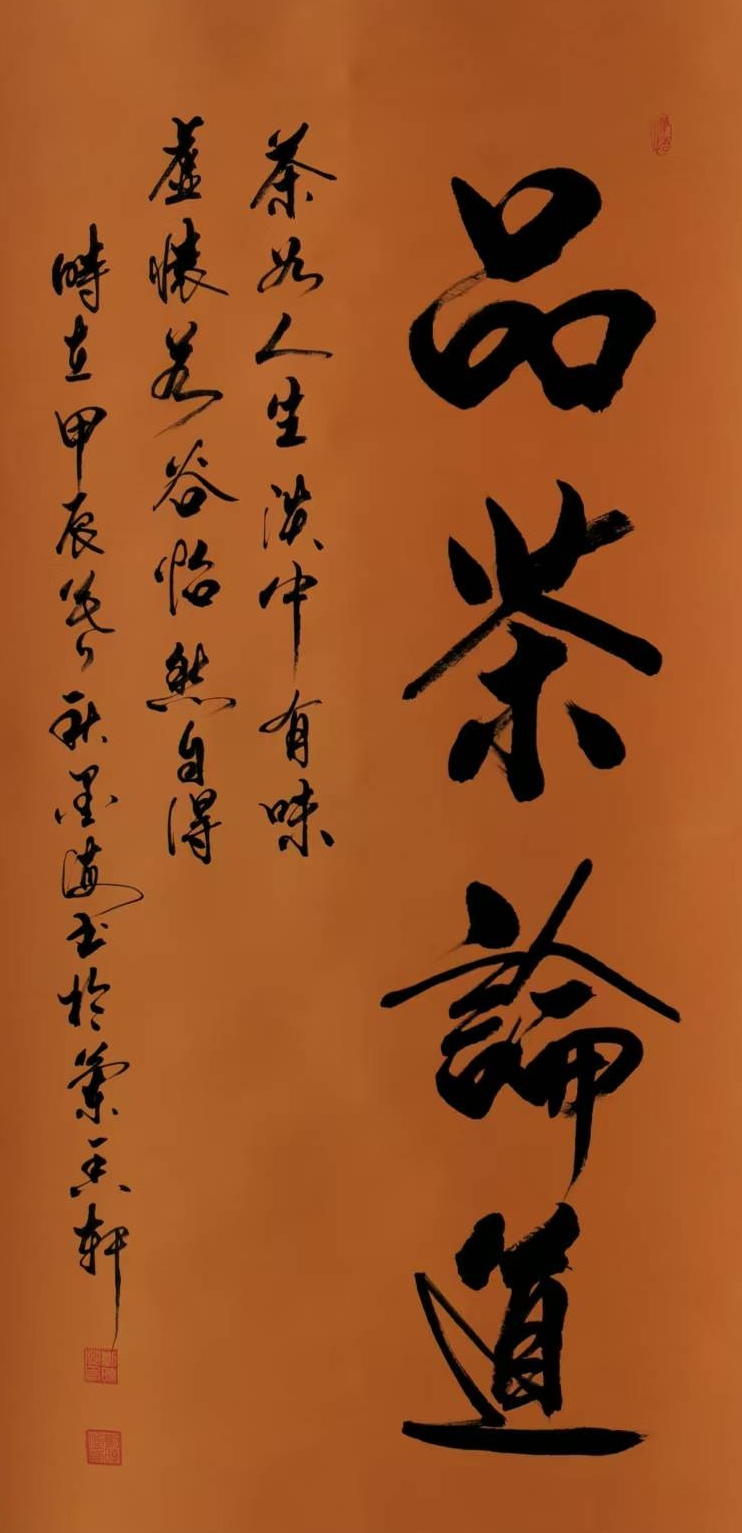 品茶論道
茶如人生淡中有味
虛懷若谷怡然自得
時在甲辰暮秋墨海书於蘭香軒